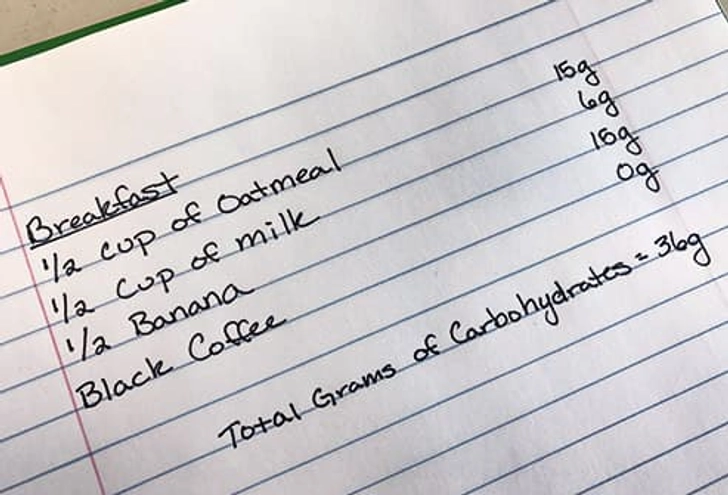 Breakfast
1/2 cup of oatmeal 15g
1/2 cup of milk 6g
1/2 Banana 15g
Black Coffee 0g
Total Grams of Carbohydrates = 36g